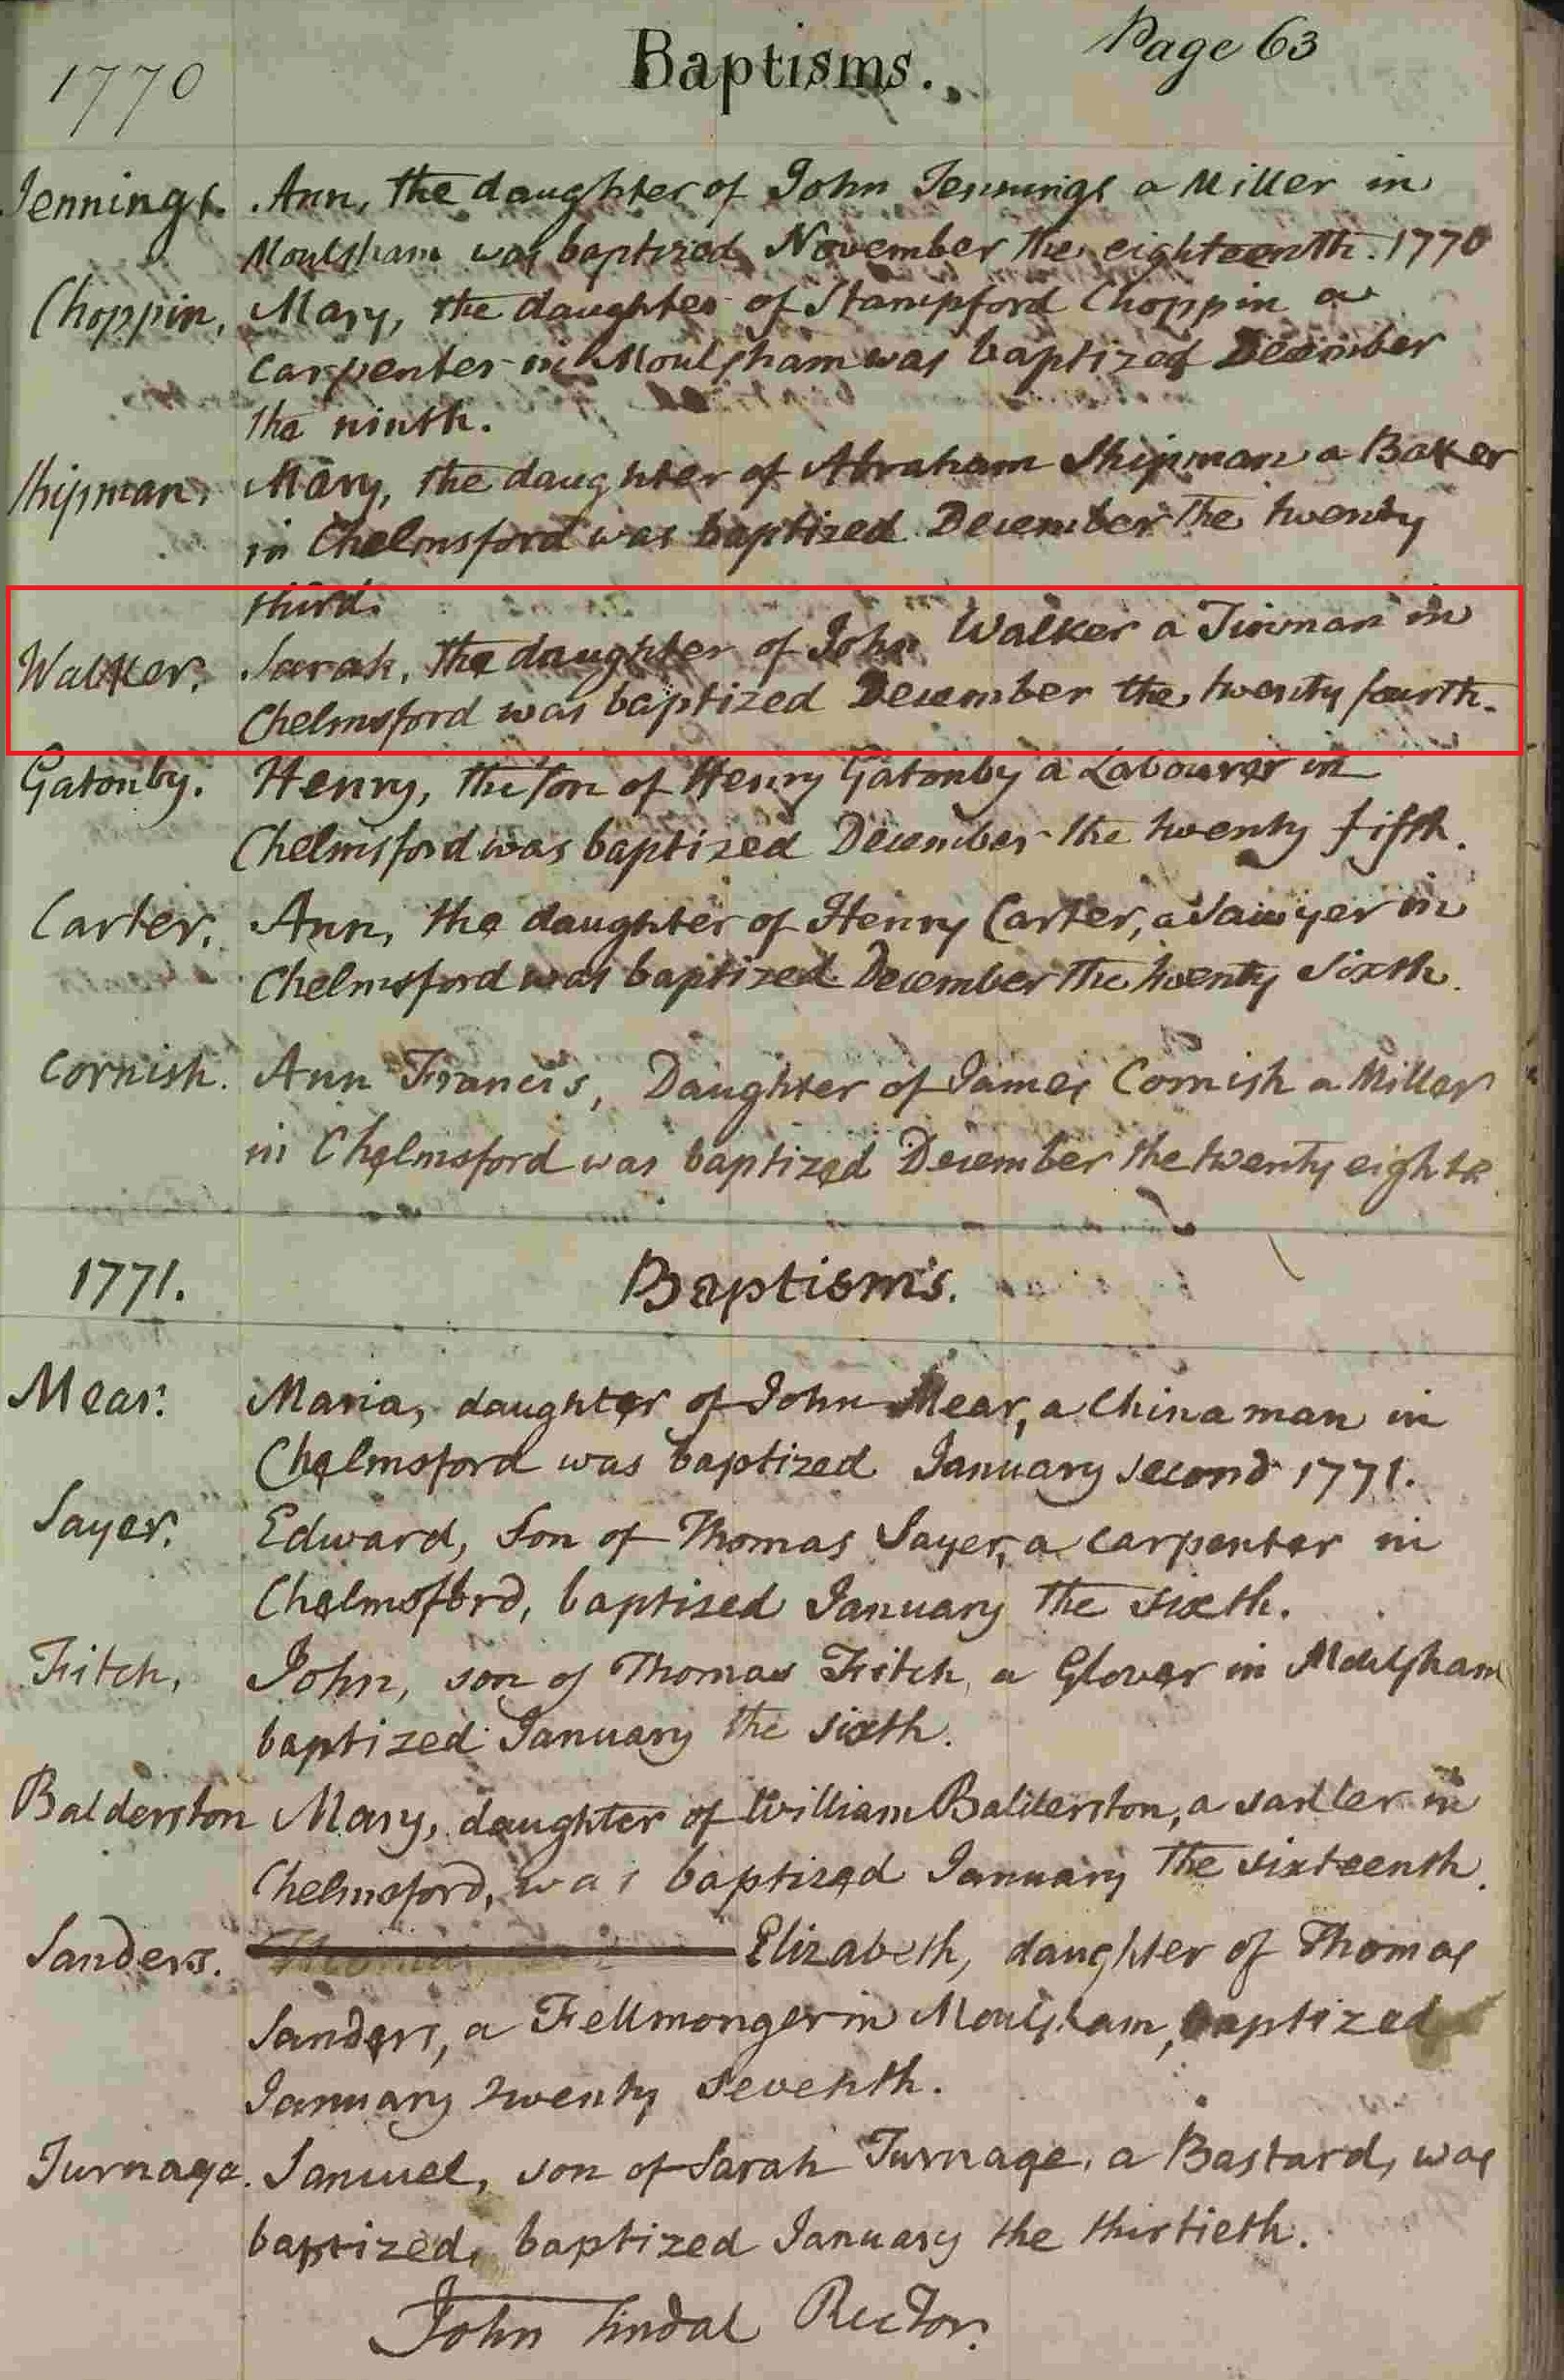 1770 Baptisms. Page 63
Jennings. Ann, the daughter of John Jennings a Miller in
Moulsham was baptized November the eighteenth. 1770
Choppin, Mary, the daughter of Stampford Choppin a
Carpenter in Moulsham was baptized December
the ninth.
Shipman, Mary, the daughter of Abraham Shipman a Baker
in Chelmsford was baptized December the twenty
third.
Walker. Sarah, the daughter of John Walker a Tinman in
Chelmsford was baptized December the twenty fourth.
Gatonby. Henry, the son of Henry Gatonby a Labourer in
Chelmsford was baptized December the twenty fifth.
Carter. Ann, the daughter of Henry Carter, a Sawyer in
Chelmsford was baptized December the twenty Sixth.
Cornish. Ann Francis, Daughter of James Cornish a Miller
in Chelmsford was baptized December the twenty eighth
1771. Baptisms.
Mear. Maria, daughter of John Mear, a China man in
Chelmsford was baptized January second 1771.
Sayer. Edward, Son of Thomas Sayer, a Carpenter in
Chelmsford, baptised January the sixth.
Fitch, John, son of Thomas Fitch, a Glover in Moulsham
baptized January the sixth.
Balderston Mary, daughter of William Balderston, a sadler in
Chelmsford, was baptized January the sixteenth.
Sanders. Elizabeth, daughter of Thomas
Sanders, a Fellmonger in Moulsham, baptized
January twenty seventh.
Turnage. Samuel, son of Sarah Turnage, a Bastard, was
baptized, baptized January the thirtieth.
John Tindal Rector.